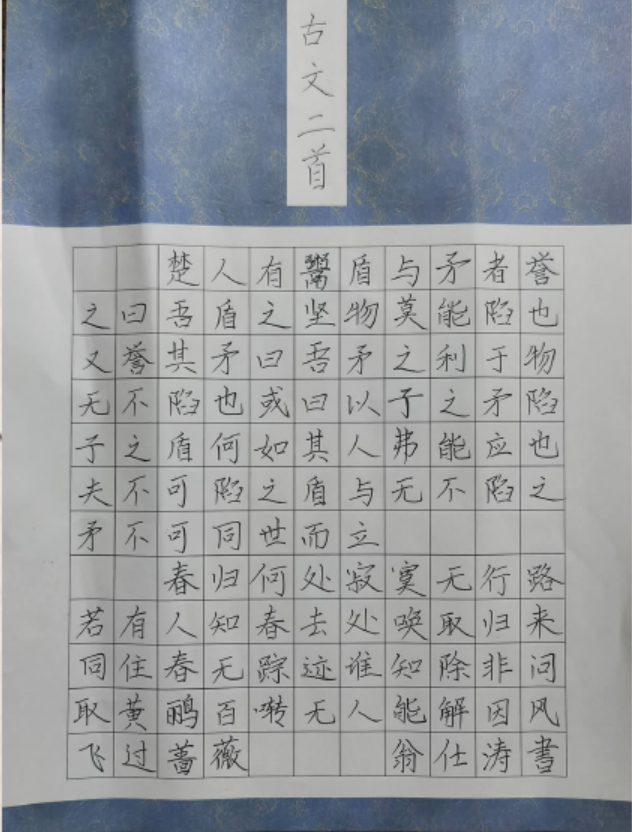 古文二首
楚人有鬻盾与矛者誉
之曰吾盾之坚物莫能陷也
又誉其矛曰吾矛之利于物
无不陷也或曰以子之矛陷
子之盾何如其人弗能应也
夫不可陷之盾与无不陷之
矛不可同世而立
春归何处寂寞无行路
若有人知春去处唤取归来
同住春无踪迹谁知除非问
取黄鹂百啭无人能解因风
飞过蔷薇 翁仕涛书